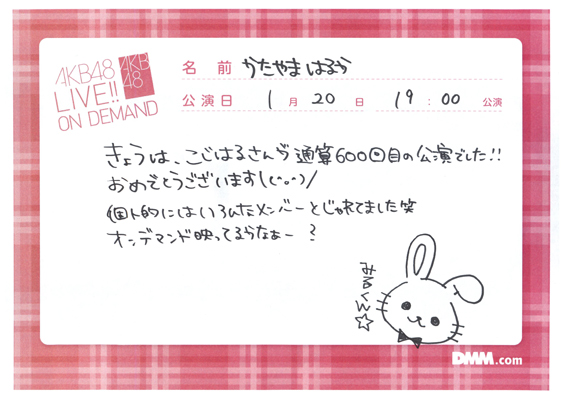 AKB48
LIVE!!
ON DEMAND
AKB
48
名 前 かたやま はるか
公演日 1 月 20 日 19 : 00 公演
きょうは、こじはるさんが通算600回目の公演でした!!
おめでとうございます\(^o^)/
個人的にはいろんなメンバーとじゃれてました笑
オンデマンド映ってるかなぁー ?
みるくん☆
DMM.com